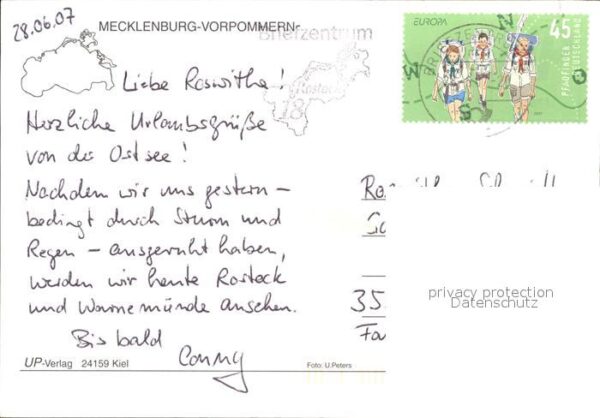 28.06.07
MECKLENBURG-VORPOMMERN
Briefzentrum
Rostock
18
EUROPA
45
PFADFINDER
DEUTSCHLAND
Liebe Roswitha!
Herzliche Urlaubsgrüße
von der Ostsee!
Nachdem wir uns gestern –
bedingt durch Sturm und
Regen – ausgeruht haben,
werden wir heute Rostock
und Warnemünde ansehen.
Bis bald
Conny
35
privacy protection
Datenschutz
UP-Verlag 24159 Kiel
Foto: U.Peters